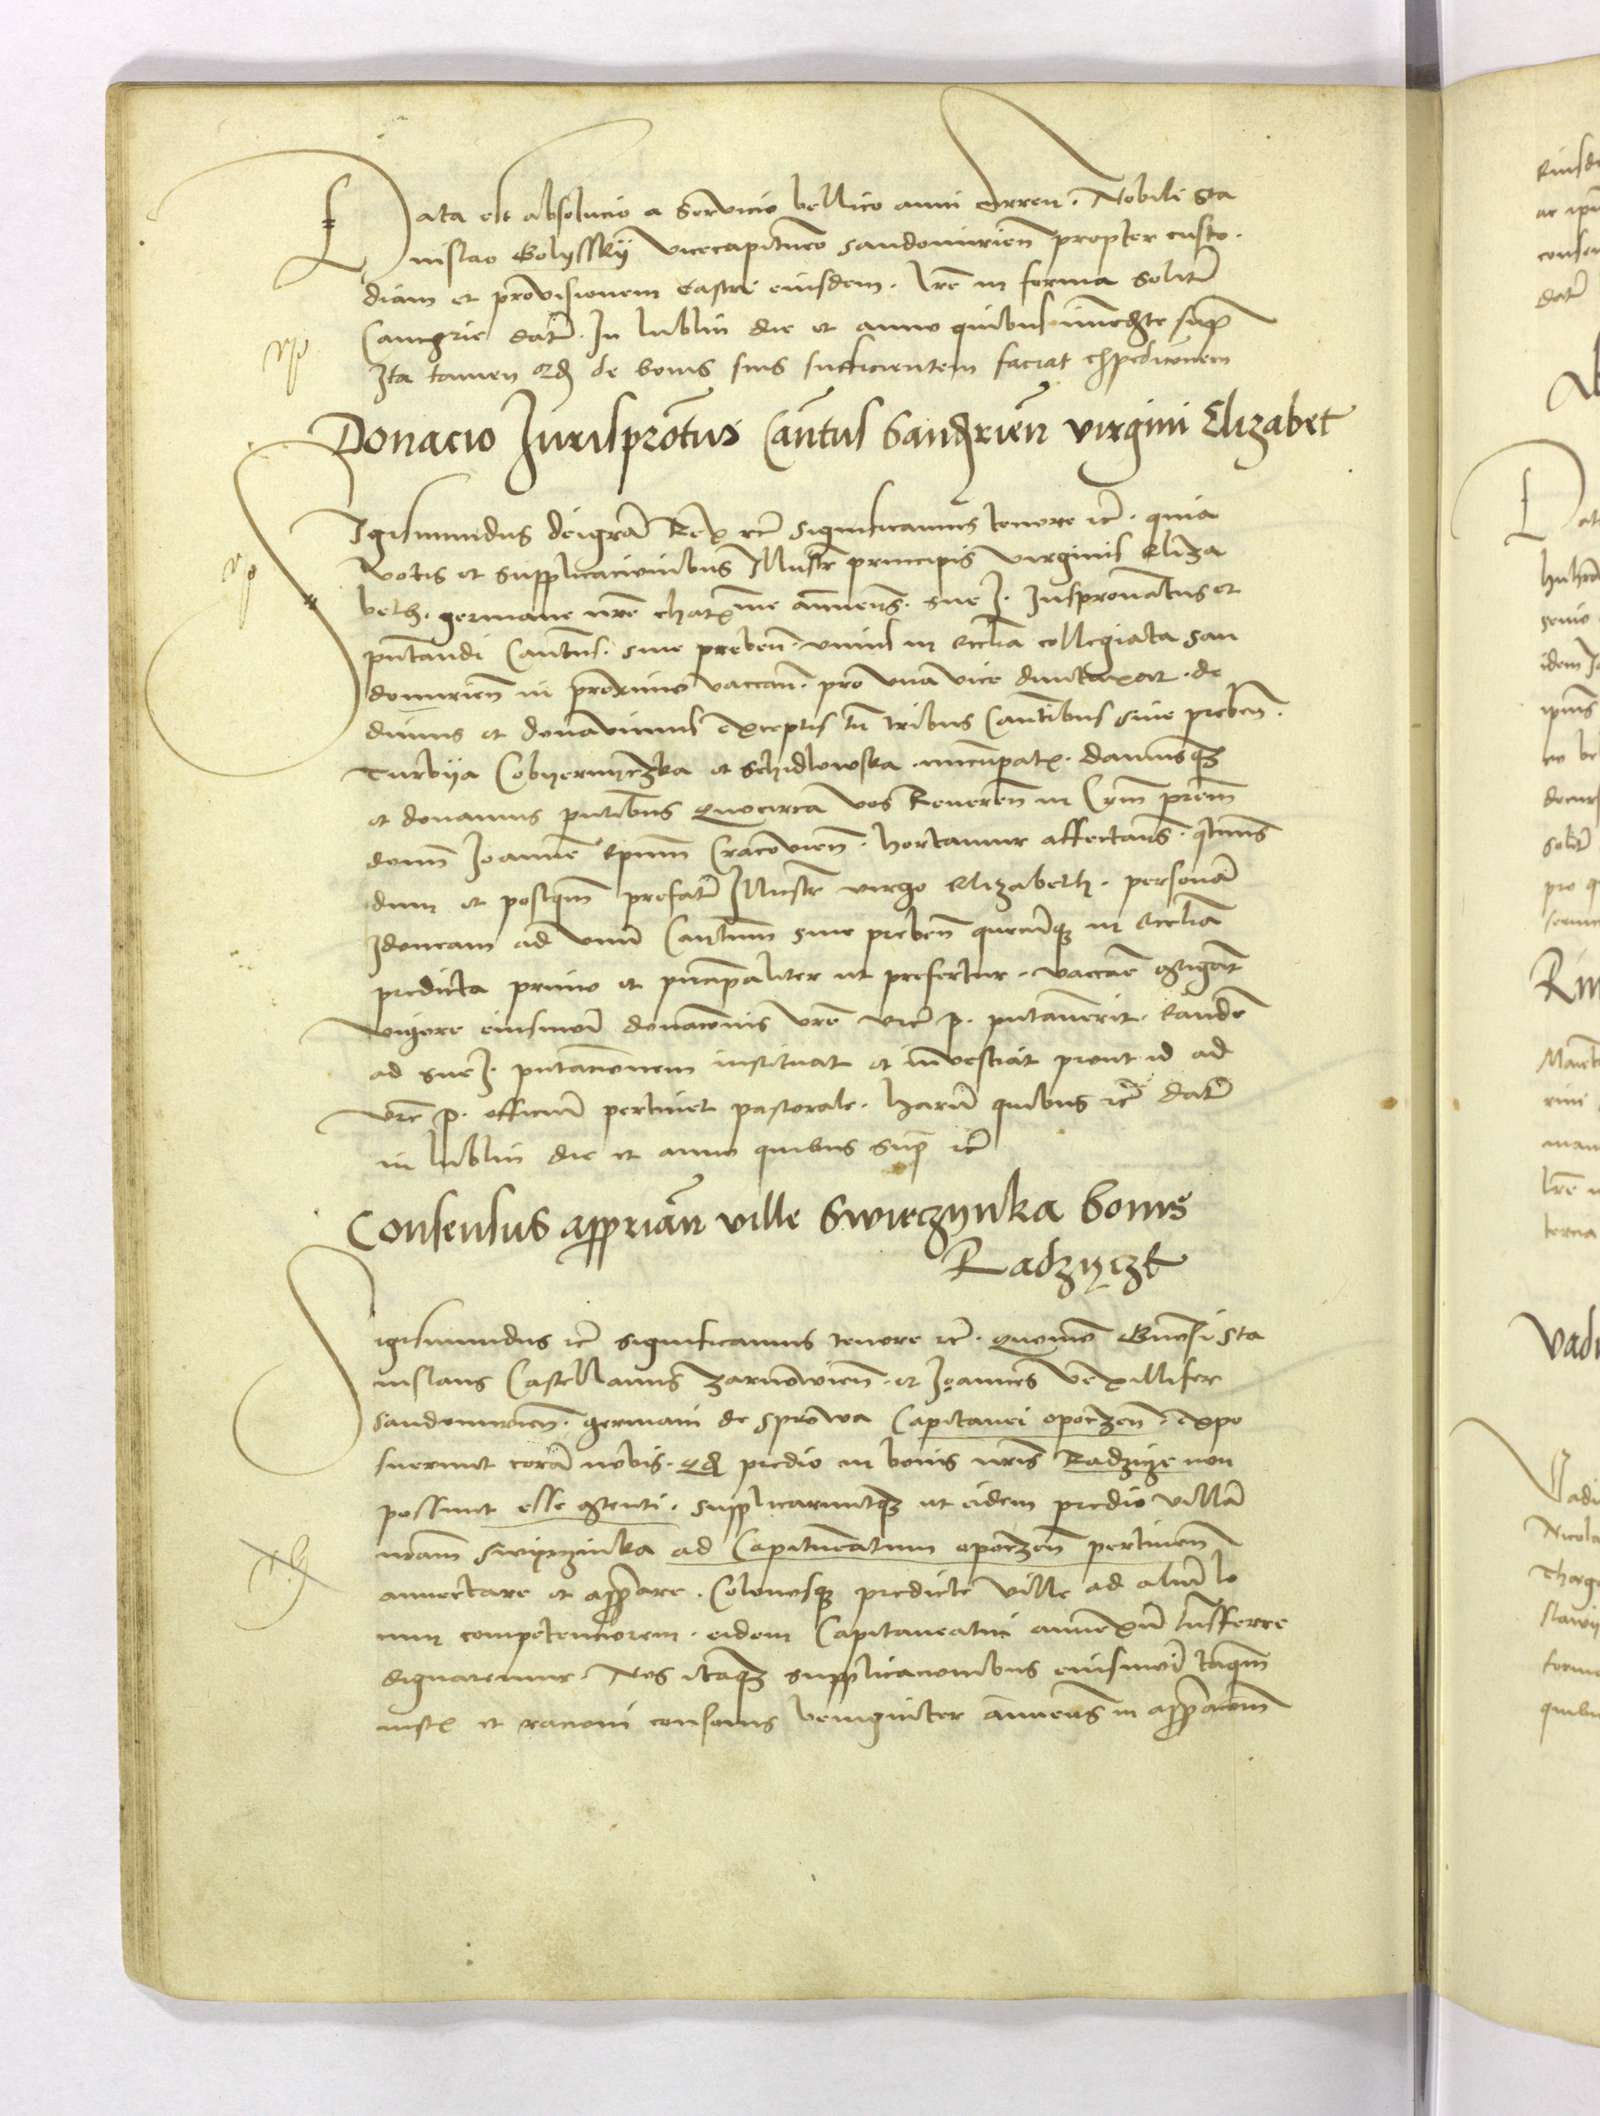 Data est absolucio a servicio bellico anni curren. Nobili Sta
nislao Golyssky vicecapitneo sandomirien propter custo
diam et provisionem castri eiusdem. lre in forma solit
Cancgrie dat. In lublin die et anno quibus immediate supra
Ita tamen qd de bonis suis sufficientem faciat expedicionem
Donacio Iurisprontus Cantus Sandrien virgini Elizabet
Sigismundus deigra Rex etc significamus tenore etc. quia
votis et supplicacionibus Illustr principis virginis Eliza
beth. germane nre charme annuens. sue I. Iuspronatus et
pntandi Cantus. sive preben. unius in ecclia collegiata San
domirien in proximo vaccan. pro una vice duntaxat. de
dimus et donavimus exceptis tn tribus Cantibus sive preben.
Turbya Cobyernyczka et Schidlowska nuncupat. damusqz
et donamus pntibus Quocirca vos Reveren in Cro prem
domn Joannem Epum Cracovien. hortamur affectans. qtnus
dum et postqm prefat Illustr virgo Elizabeth. personam
Idoneam ad unum Cantum sive preben quecunqz in ecclia
predicta primo et pncipaliter ut prefertur. vaccare contigat
vigore eiusmoi donacionis vre vre p. pntaverit. eande
ad sue I. pntacionem instituat et investiat prout id ad
vre p. officium pertinet pastorale. harum quibus etc dat
in lublin die et anno quibus supra etc
Consensus apprian ville Swieczynka bonis
Radzycze
Sigismundus etc significamus tenore etc. Quomo Gnosi Sta
nislaus Castellanus zarnowien. et Joannes vexillifer
sandomirien. germani de sprowa Capitanei opoczen. expo
suerunt coram nobis. qd predio in bonis nris Radzicze non
possint esse contenti. supplicaruntqz ut eidem predio villam
nram swyeczinka ad Capitneatum opoczen pertinen
annectare et appriare. Colonosqz predicte ville ad alium lo
cum competenciorem. eidem Capitaneatui annexum transferre
dignaremur. Nos itaqz supplicacionibus eiusmoi taqm
iustis et racioni consonis benigniter annuens in appriacionem